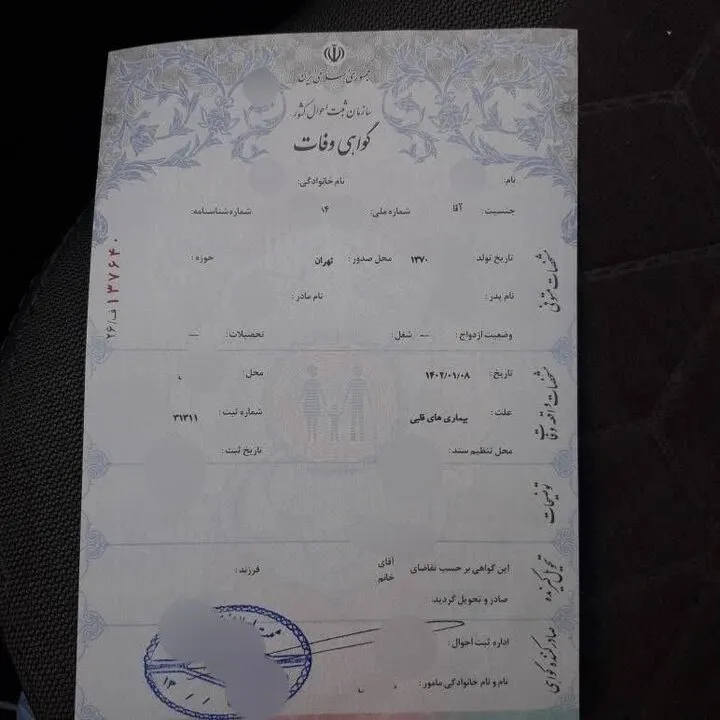 جمهوری اسلامی ایران
سازمان ثبت احوال کشور
گواهی وفات
نام:
نام خانوادگی:
جنسیت: آقا شماره ملی: ۱۴ شماره شناسنامه:
تاریخ تولد ۱۳۷۰ محل صدور: تهران حوزه:
نام پدر: نام مادر:
وضعیت ازدواج: — شغل: تحصیلات: —
مشخصات متوفی
تاریخ: ۱۴۰۲/۰۱/۰۸ محل:
علت: بیماری های قلبی شماره ثبت: ۳۱۳۱۱
محل تنظیم سند: تاریخ ثبت:
مشخصات واقعه وفات
توضیحات
این گواهی بر حسب تقاضای آقای
خانم فرزند:
صادر و تحویل گردید.
تحویل گیرنده
اداره ثبت احوال:
نام و نام خانوادگی مامور:
صادر کننده گواهی
۱۳۷۶۴۰ ف/۲۶